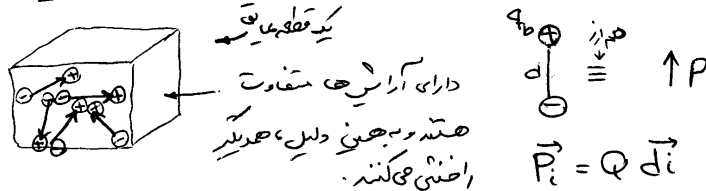 یک قطعه عایق
دارای آرایش‌ها متفاوت
هستند و به همین دلیل، همدیگر
را خنثی می‌کنند.
q_b
+
d
−
≡
↑ P
P⃗i = Q d⃗i